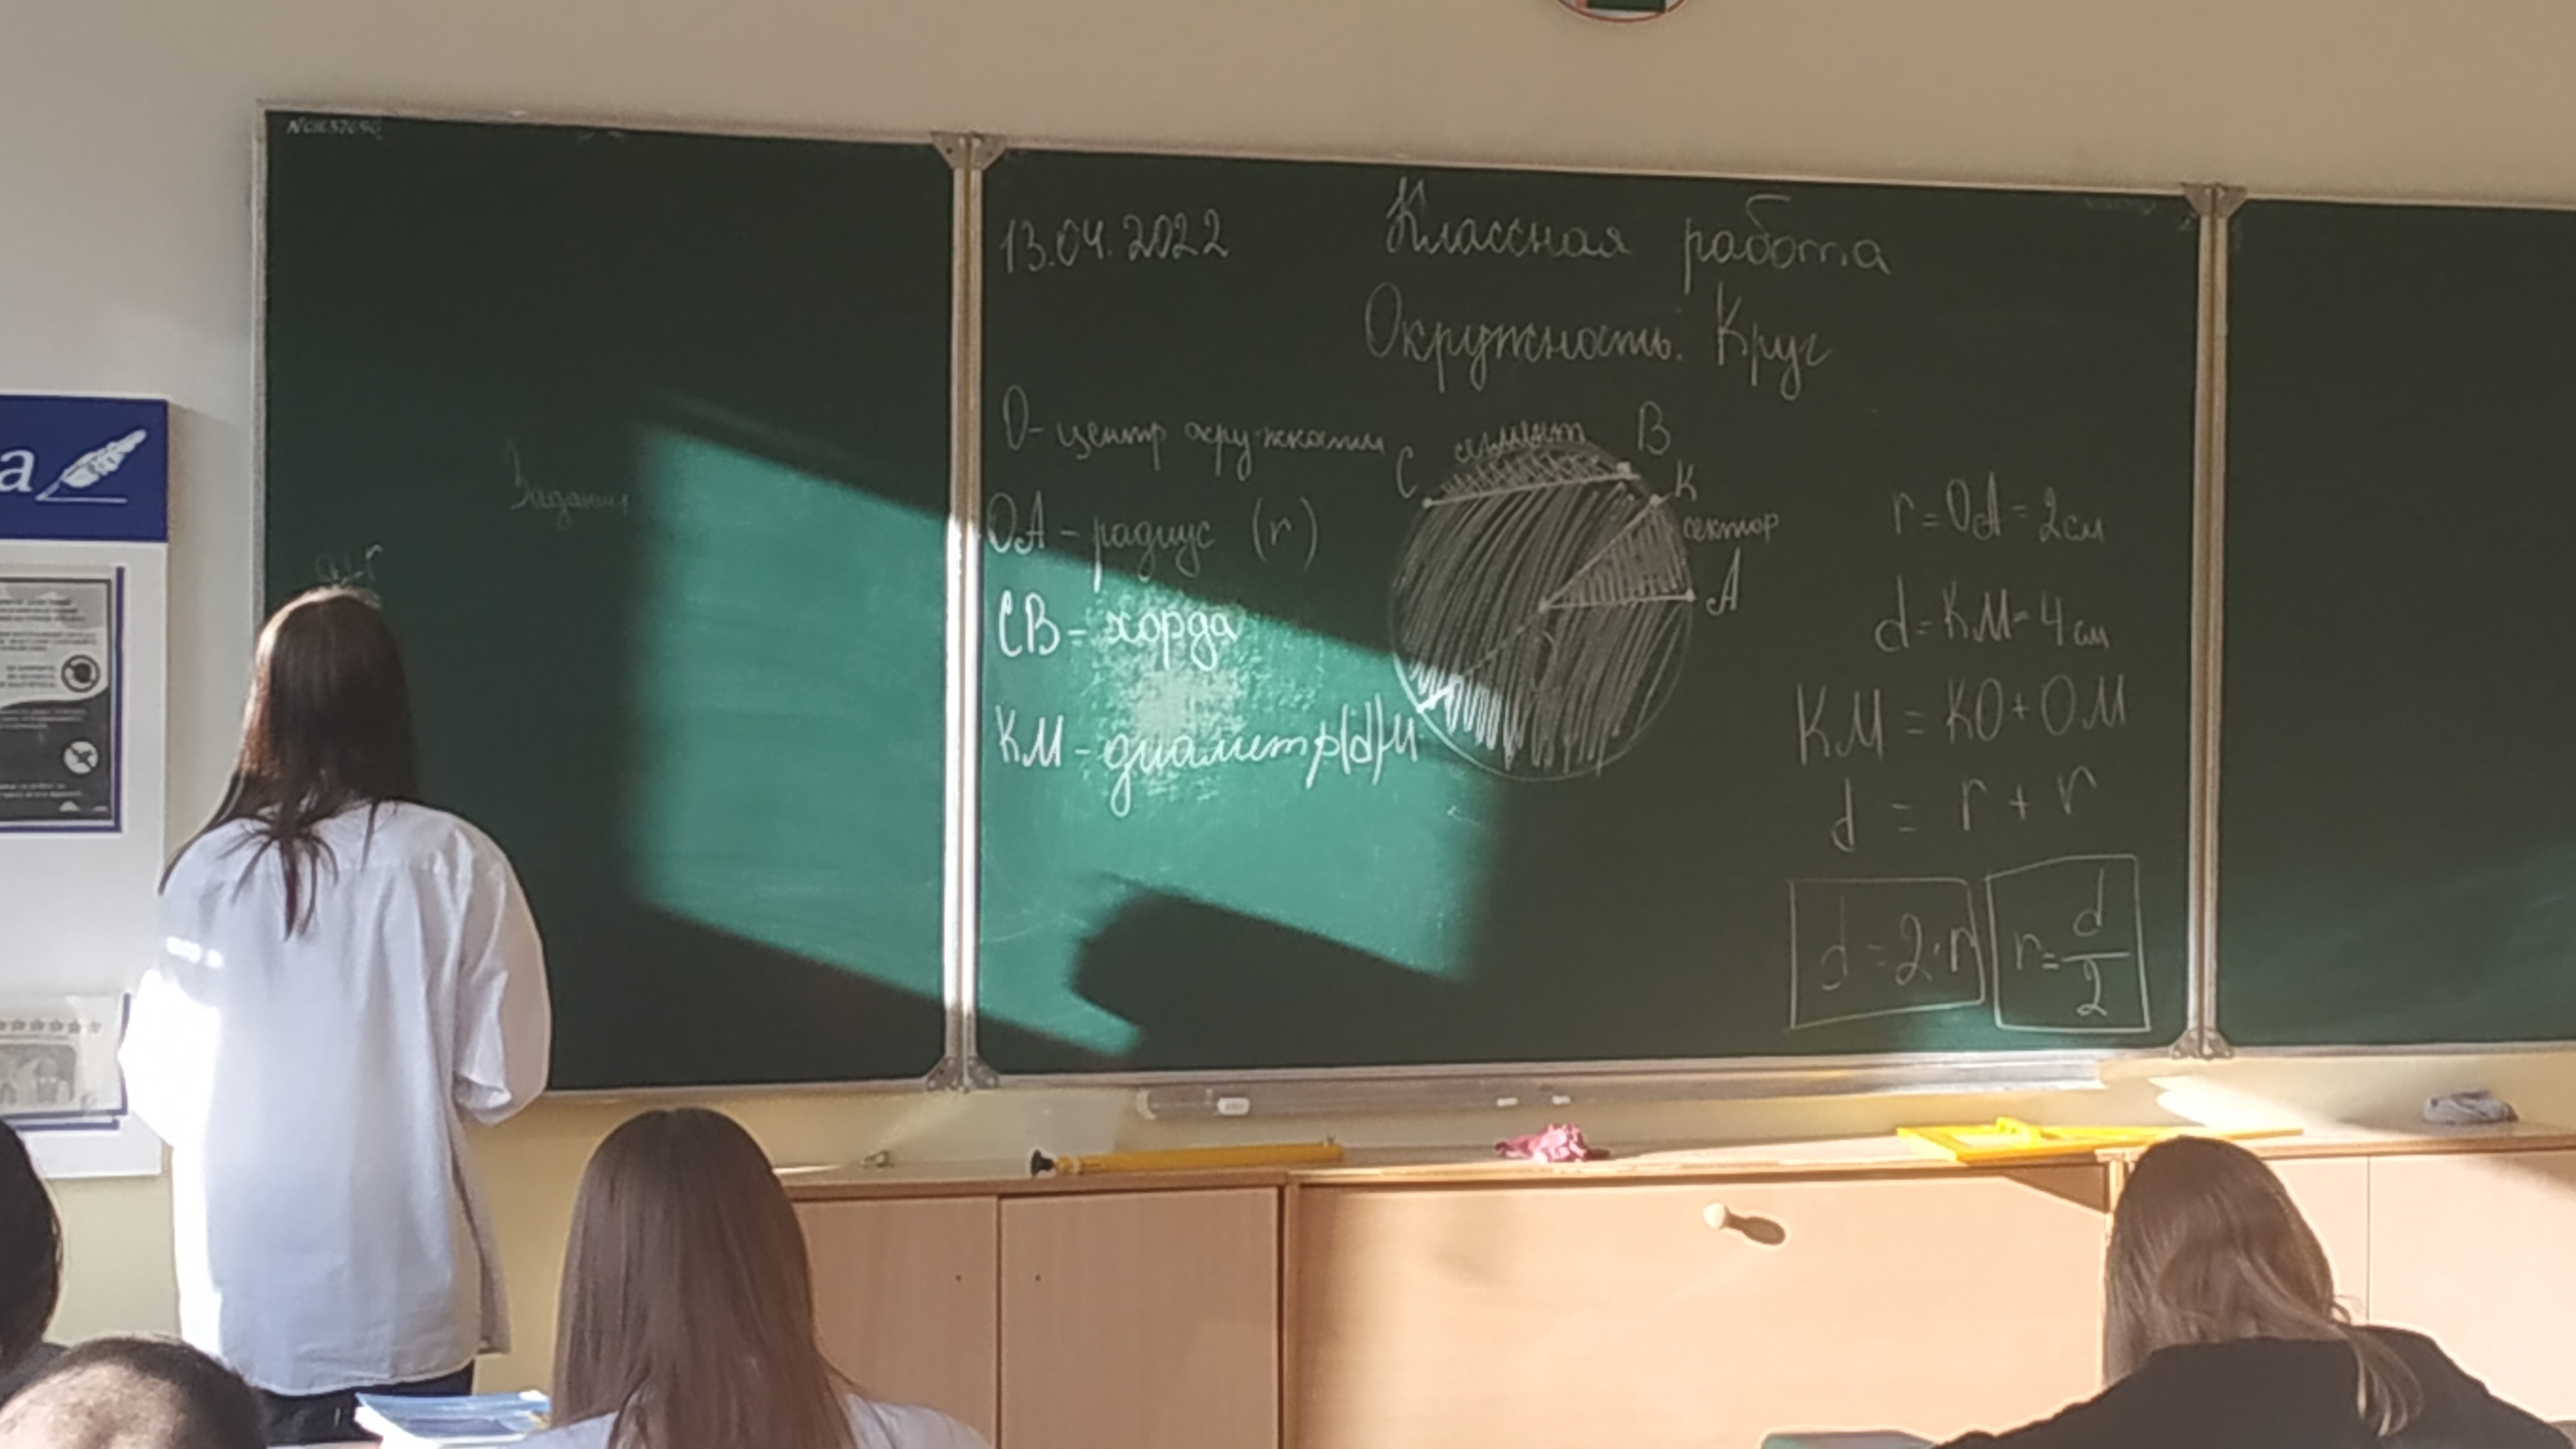 13.04.2022
Классная работа
Окружность. Круг
O - центр окружности
OA - радиус (r)
CB - хорда
KM - диаметр (d)
сегмент
C
B
K
сектор
A
M
r = OA = 2 см
d = KM = 4 см
KM = KO + OM
d = r + r
d = 2 · r
r = d
2
Задания
а